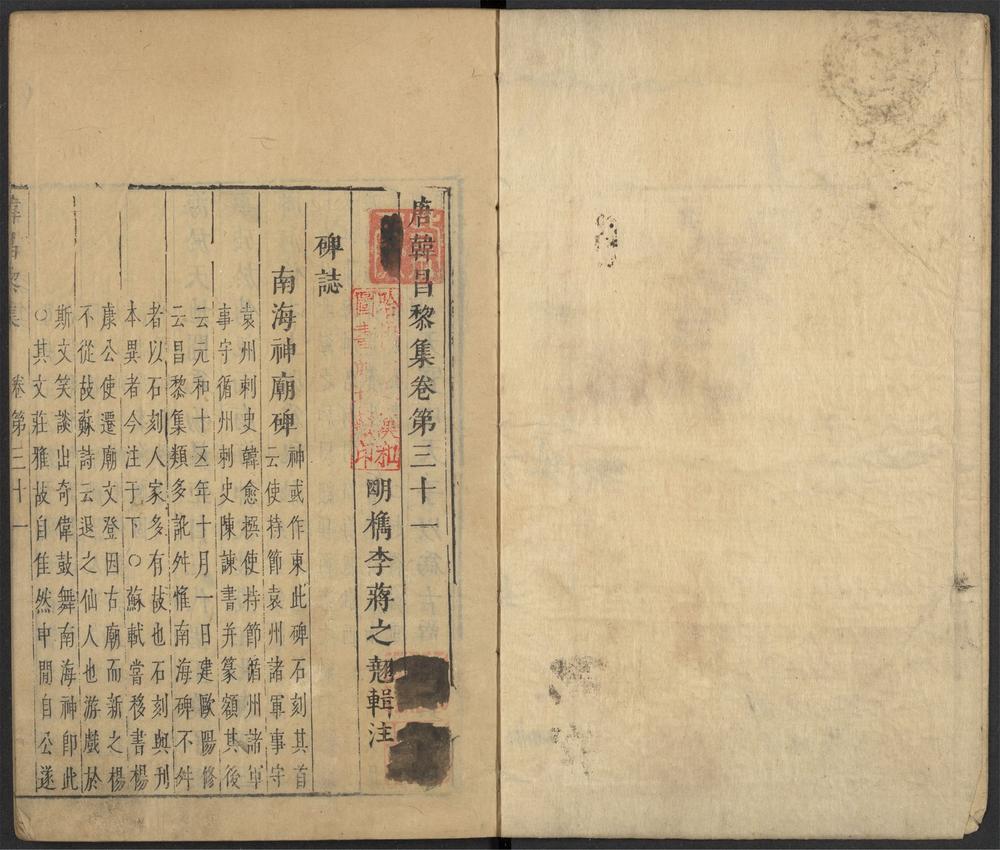 唐韓昌黎集卷第三十一
明檇李蔣之翹輯注
碑誌
南海神廟碑
神或作東此碑石刻其首
云使持節袁州諸軍事守
袁州刺史韓愈撰使持節循州諸軍
事守循州刺史陳諫書并篆額其後
云元和十五年十月一日建歐陽修
云昌黎集類多訛舛惟南海碑不舛
者以石刻人家多有故也石刻與刊
本異者今注于下○蘇軾嘗移書楊
康公使遷廟文登因古廟而新之楊
不從故蘇詩云退之仙人也游戲於
斯文笑談出奇偉鼓舞南海神卽此
○其文莊雅故自隹然中閒自公遂
韓昌黎集 卷第三十一
哈佛 漢和
圖書 印